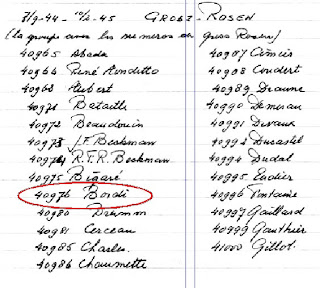 7/9-44 - 10/2-45 GROSZ-ROSEN
(la groupe avec les numeros de Gross Rosen)
40965 Abada
40966 René
40968 Aubert
40971 Bataille
40972 Beaudouin
40973 J.F. Beekman
40974 R.F.R. Beekman
40975 Bigaré
40976 Bordi
40980 Drumm
40981 Cerceau
40985 Charles
40986 Chaumette
40987
40988 Coudert
40989 Draume
40990
40991 Devaux
40992 Ducastel
40994 Dudal
40995
40996 Fontaine
40997 Gaillard
40999 Gauthier
41000 Gillot